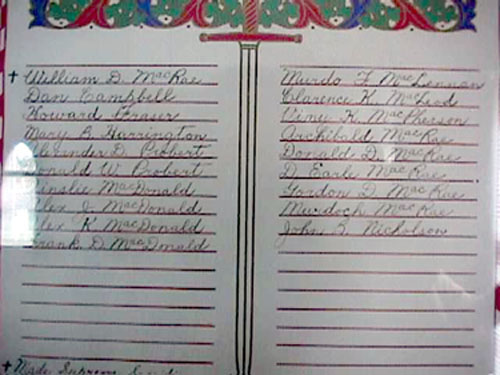 † William D. MacRae
Dan Campbell
Howard Fraser
Mary B. Harrington
Alexander D. Probert
Donald W. Probert
Ainslie MacDonald
Alex J. MacDonald
Alex K. MacDonald
Frank D. MacDonald
Murdo F. MacLennan
Clarence K. MacLeod
K. MacPherson
Archibald MacRae
Donald D. MacRae
D. Earle MacRae
Gordon D. MacRae
Murdoch MacRae
John Nicholson
† Made Supreme